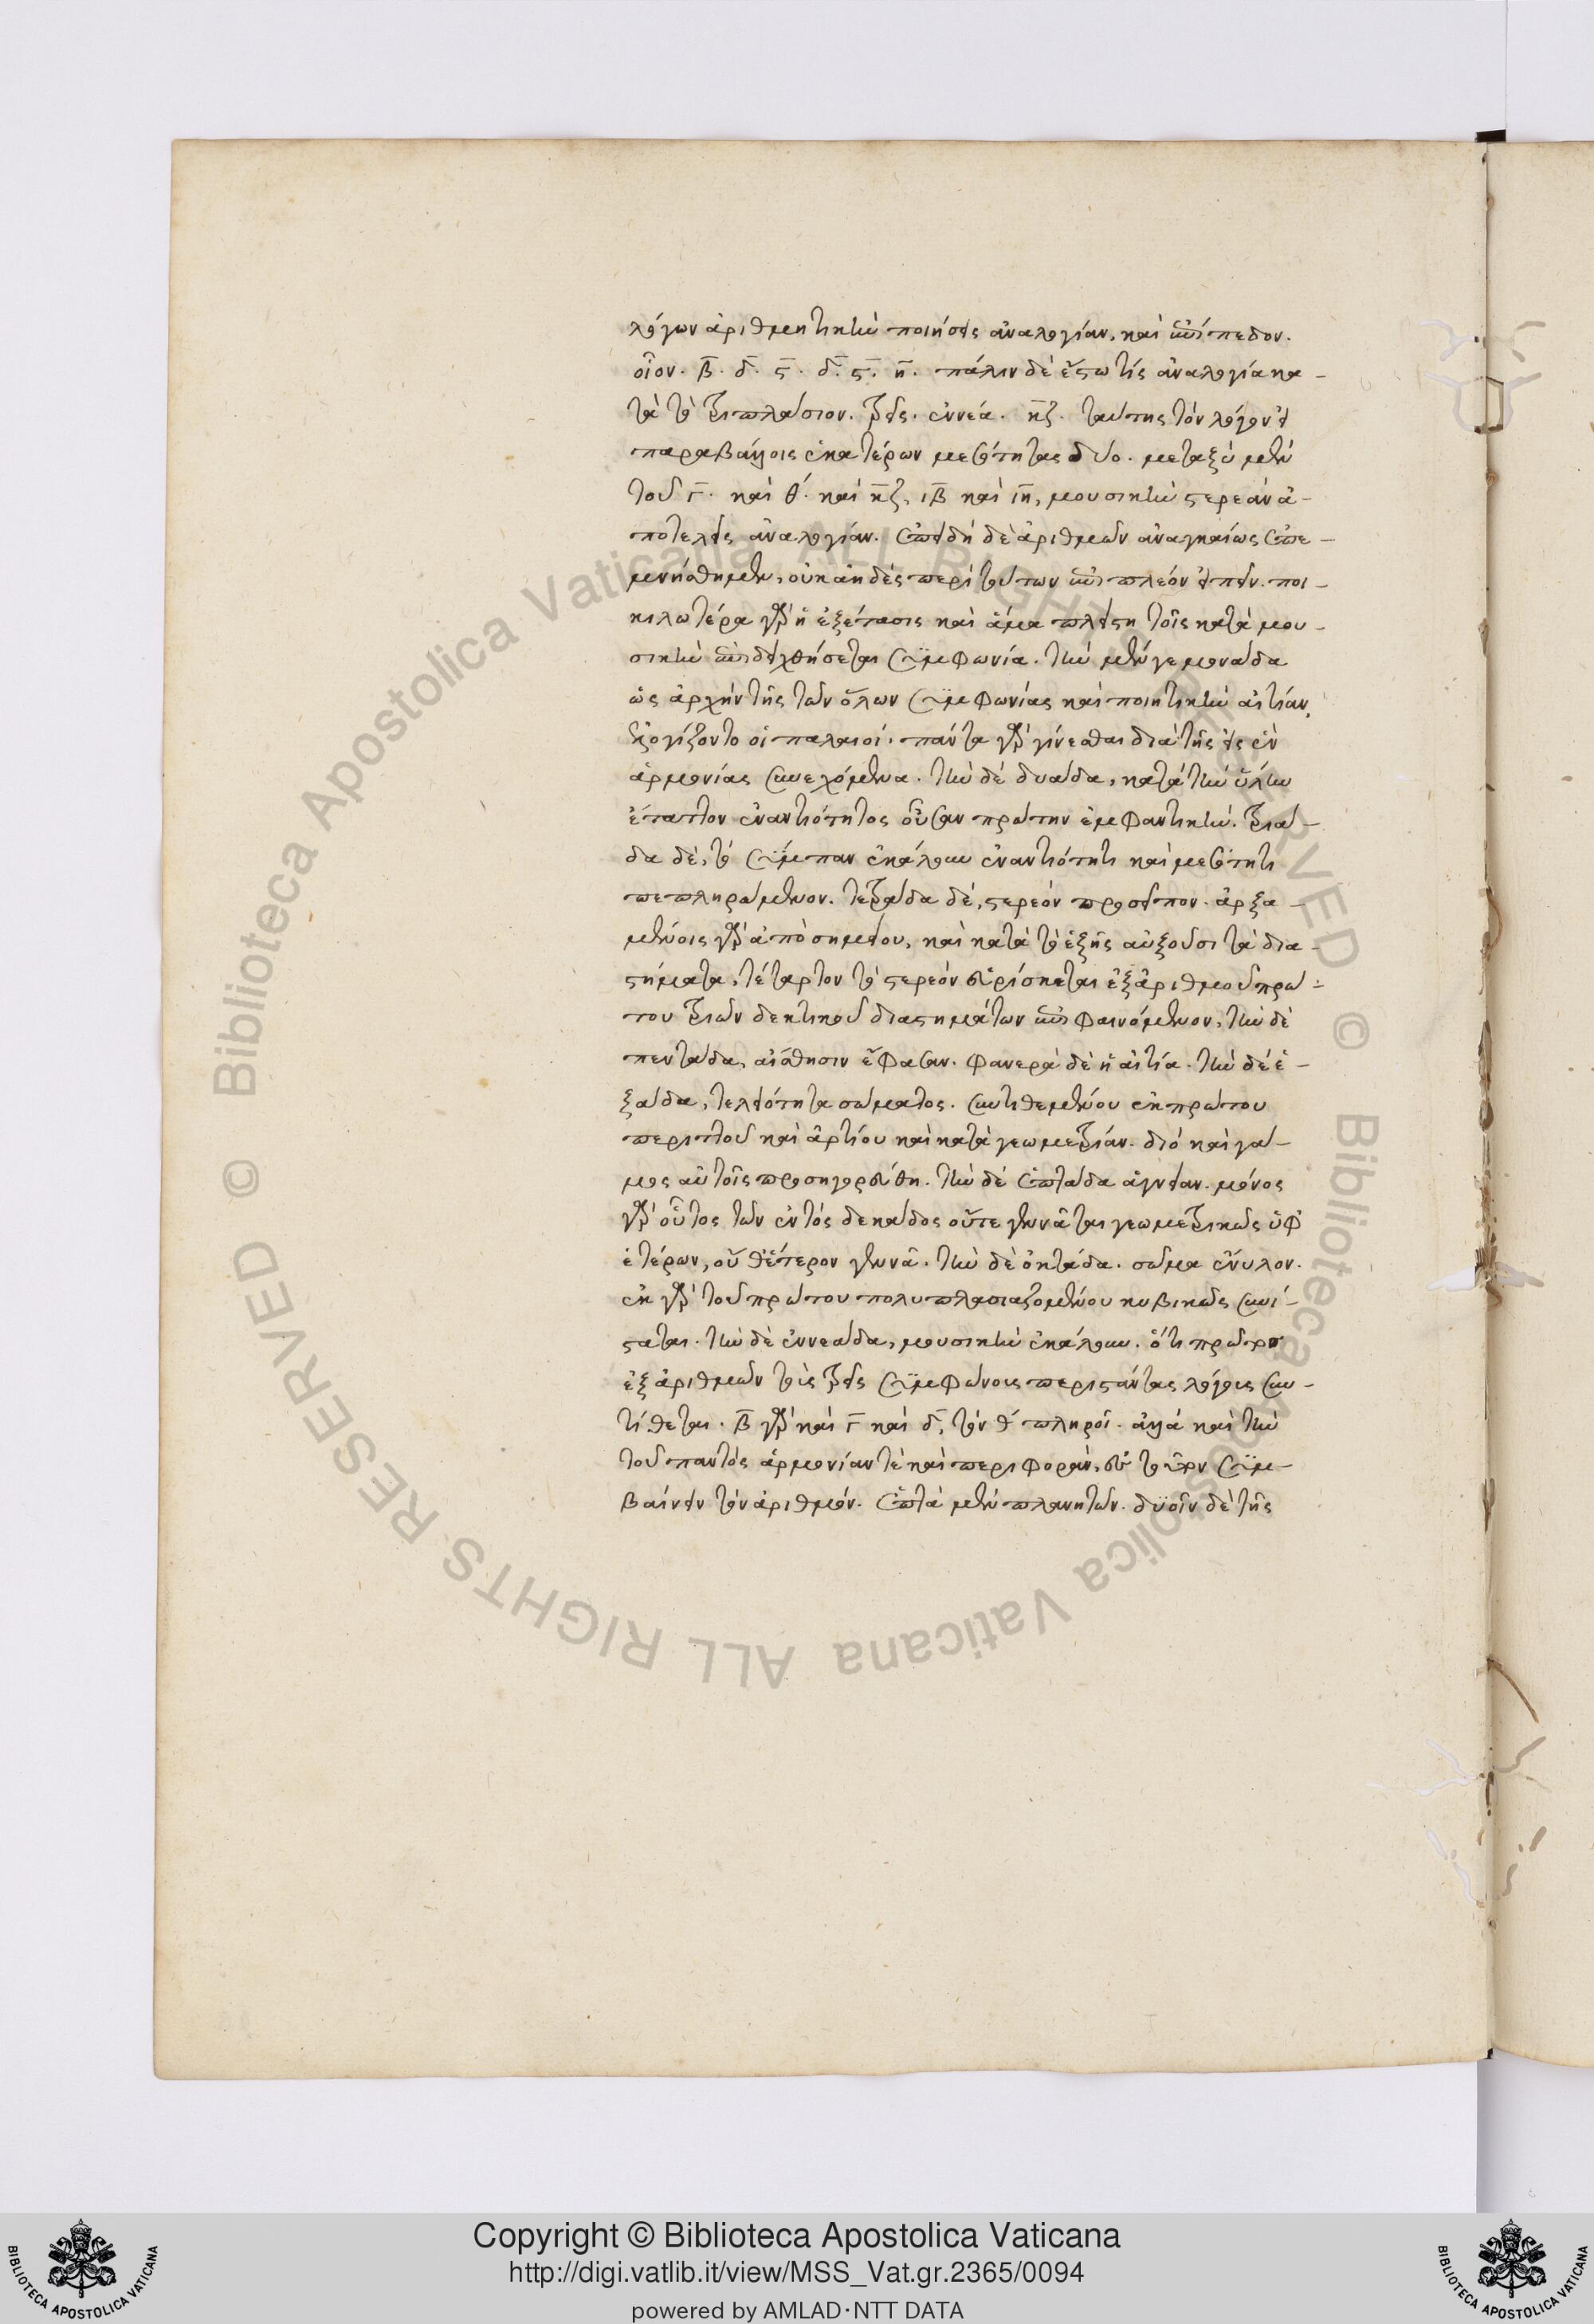 λόγων ἀριθμητικὴν ποιήσεις ἀναλογίαν, καὶ ἐπίπεδον.
οἷον. β̅. δ̅. ϛ̅. δ̅. ϛ̅. η̅. πάλιν δὲ ἔστω τίς ἀναλογία κα-
τὰ τὸ τριπλάσιον. τρεῖς. ἐννέα. κ̅ζ̅. ταύτης τὸν λόγον εἰ
παραβάλλοις ἑκατέρων μεσότητας δύο. μεταξὺ μὲν
τοῦ γ̅. καὶ θ. καὶ κ̅ζ̅, ι̅β̅ καὶ ι̅η̅, μουσικὴν στερεὰν ἀ-
ποτελεῖς ἀναλογίαν. ἐπειδὴ δὲ ἀριθμῶν ἀναγκαίως ἐπε-
μνήσθημεν, οὐκ ἀηδὲς περὶ τούτων ἐπὶ πλεόν εἰπεῖν. ποι-
κιλωτέρα γὰρ ἡ ἐξέτασις καὶ ἅμα πλείστη τοῖς κατὰ μου-
σικὴν ἐπιδειχθήσεται συμφωνία. τὴν μέν γε μονάδα
ὡς ἀρχὴν τῆς τῶν ὅλων συμφωνίας καὶ ποιητικὴν αἰτίαν,
ἐλογίζοντο οἱ παλαιοί. πάντα γὰρ γίνεσθαι διὰ τῆς εἰς ἓν
ἁρμονίας συνεχόμενα. τὴν δὲ δυάδα, κατὰ τὴν ὕλην
ἔταττον ἐναντιότητος οὖσαν πρώτην ἐμφαντικήν. τριά-
δα δὲ, τὸ σύμπαν ἐκάλουν ἐναντιότητι καὶ μεσότητι
πεπληρωμένον. τετράδα δὲ, στερεόν πρόσειπον. ἀρξα-
μένοις γὰρ ἀπὸ σημείου, καὶ κατὰ τὸ ἑξῆς αὔξουσι τὰ δια-
στήματα, τέταρτον τὸ στερεὸν εὑρίσκεται ἐξ ἀριθμοῦ πρώ-
του τριῶν δεκτικοῦ διαστημάτων ἐπιφαινόμενον, τὴν δὲ
πεντάδα, αἴσθησιν ἔφασαν. φανερὰ δὲ ἡ αἰτία. τὴν δὲ ἑ-
ξάδα, τελειότητα σώματος. συντιθεμένου ἐκ πρώτου
περιττοῦ καὶ ἀρτίου καὶ κατὰ γεωμετρίαν. διὸ καὶ γά-
μος αὐτοῖς προσηγορεύθη. τὴν δὲ ἑπτάδα ἁγνείαν. μόνος
γὰρ οὗτος τῶν ἐντὸς δεκάδος οὔτε γεννᾶται γεωμετρικῶς ὑφ'
ἑτέρων, οὔθ' ἕτερον γεννᾶ. τὴν δὲ ὀκτάδα. σῶμα ἔνυλον.
ἐκ γὰρ τοῦ πρώτου πολυπλασιαζομένου κυβικῶς συνί-
σταται. τὴν δὲ ἐννεάδα, μουσικὴν ἐκάλουν. ὅτι πρῶτον
ἐξ ἀριθμῶν τοὺς τρεῖς συμφώνους περιστάντας λόγους συν-
τίθεται. β̅ γὰρ καὶ γ̅ καὶ δ̅, τὸν θ πληροῖ. ἀλλὰ καὶ τὴν
τοῦ παντὸς ἁρμονίαν τὲ καὶ περιφορὰν, εἰς τοῦτον συμ-
βαίνειν τὸν ἀριθμόν. ἑπτὰ μὲν πλανητῶν. δυοῖν δὲ τῆς
Copyright © Biblioteca Apostolica Vaticana
http://digi.vatlib.it/view/MSS_Vat.gr.2365/0094
powered by AMLAD·NTT DATA
BIBLIOTECA APOSTOLICA VATICANA
BIBLIOTECA APOSTOLICA VATICANA
© Biblioteca Apostolica Vaticana ALL RIGHTS RESERVED © Biblioteca Apostolica Vaticana ALL RIGHTS RESERVED